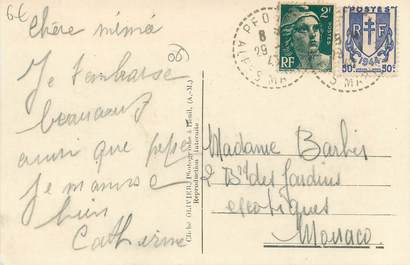 6€
Chère mémé
Je t'embrasse
beaucoup
ainsi que pépé
Je m'amuse
bien
Catherine
06
Cliché OLIVIER, Photographe à Breil, (A.-M.)
Reproduction Interdite
PEÏ
8
29
S M
POSTES
2F
RF
POSTES
R F
1944
50c 50c
Madame Barbis
2 Bd des Jardins
exotiques
Monaco